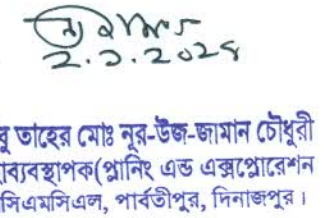 ২.১.২০২৪
বু তাহের মোঃ নূর-উজ-জামান চৌধুরী
ব্যবস্থাপক(প্লানিং এন্ড এক্সপ্লোরেশন
সিএমসিএল, পার্বতীপুর, দিনাজপুর।